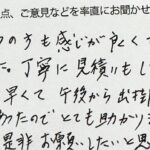 点、ご意見などを率直にお聞かせ
の方も感じが良く
た。丁寧に見積いもし
早くて午後から出掛
あったのでとても助かり
是非お願いしたいと思